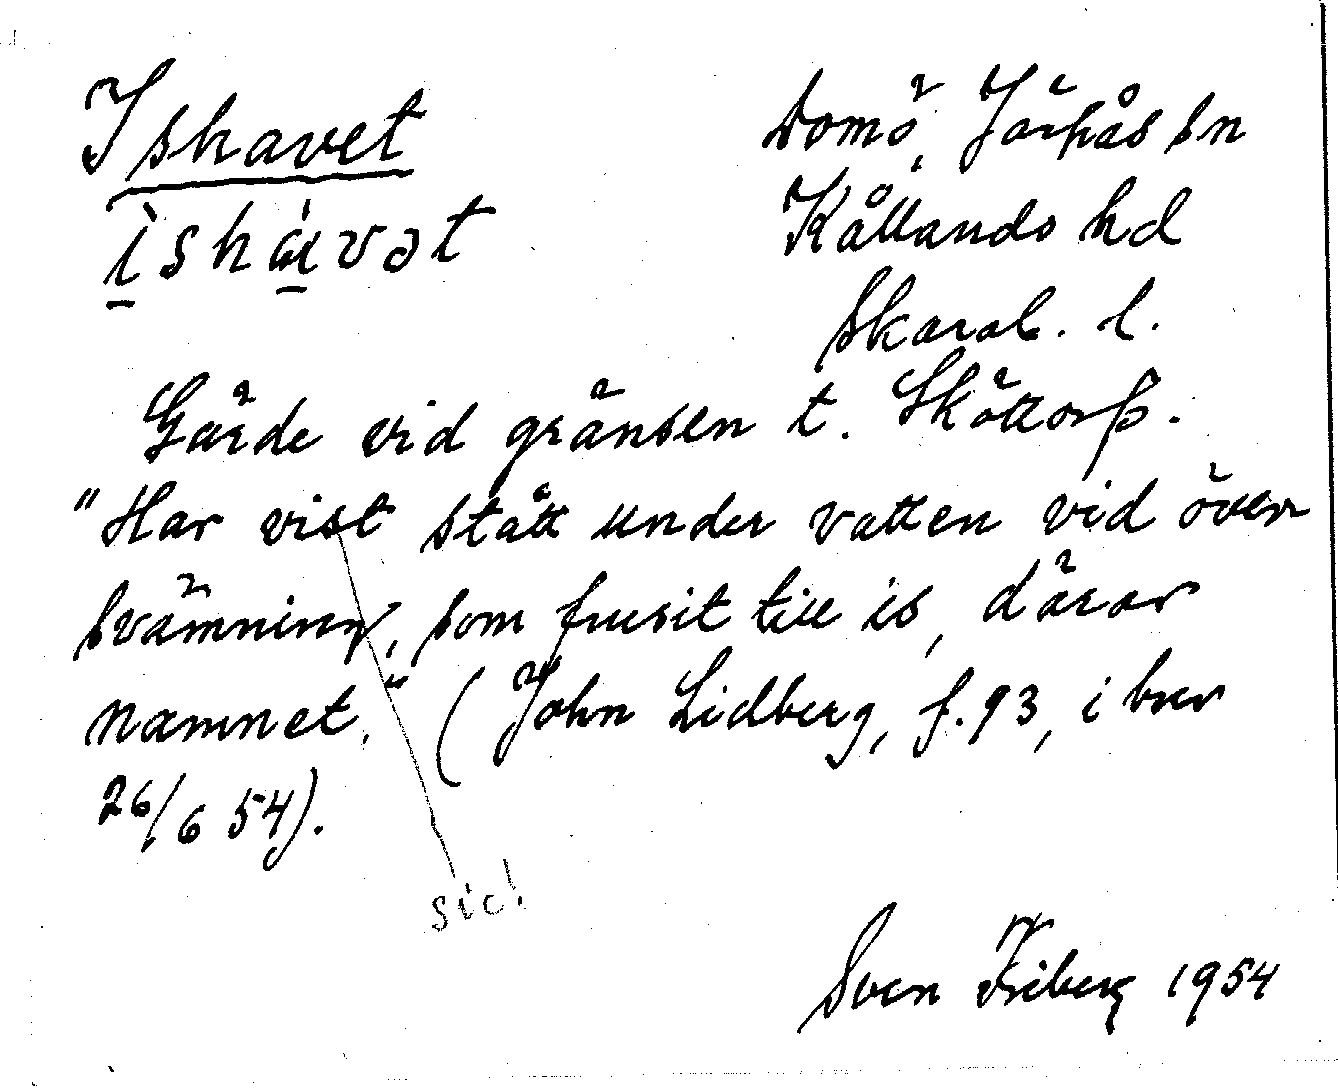 Ishavet
ìshávət
Domö, Järpås sn
Kållands hd
Skarab. l.
Gärde vid gränsen t. Sköttorp.
"Har vist stått under vatten vid över
svämning, som frusit till is, därav
namnet." (John Lidberg, f. 93, i brev
26/6 54).
sic!
Sven Friberg 1954